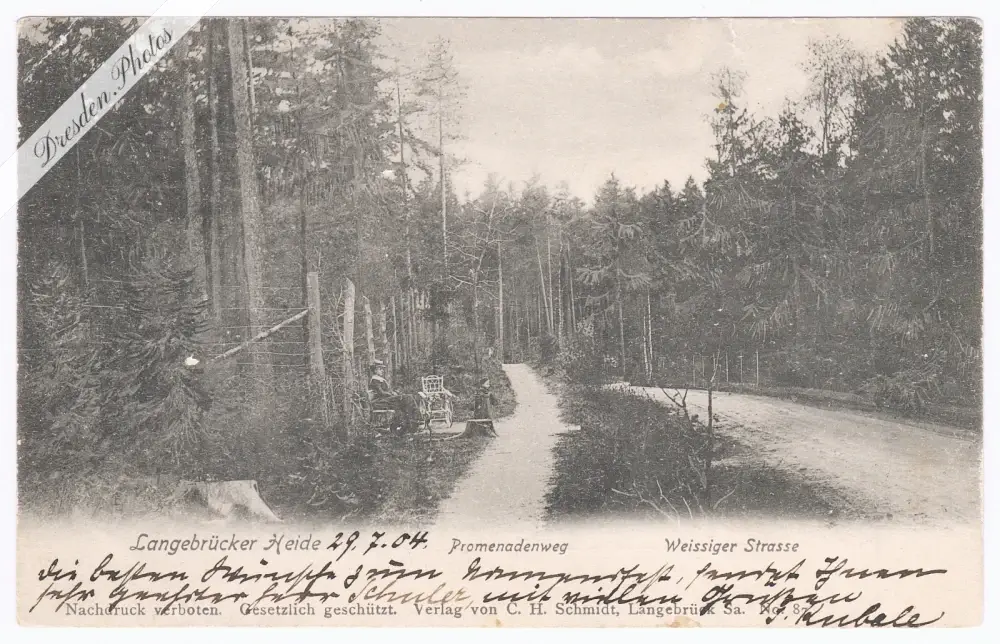 Dresden.Photos
Langebrücker Heide 29.7.04. Promenadenweg Weissiger Strasse
die besten Wünsche zum Namensfest, sendet Ihnen
sehr geehrter Herr Schuler, mit vielen Grüßen
Nachdruck verboten. Gesetzlich geschützt. Verlag von C. H. Schmidt, Langebrück Sa. No. 87
J. Kubale